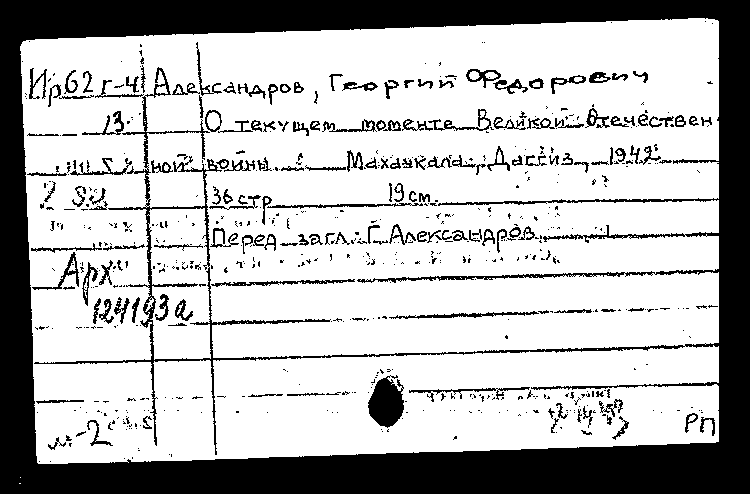 Ир62г-4 Александров, Георгий Федорович
13 О текущем моменте Великой Отечествен-
ной войны. Махачкала, Даггиз, 1942
2 ям 36 стр 19 см.
Перед загл.: Г. Александров
Арх
124193а
м-2
РП